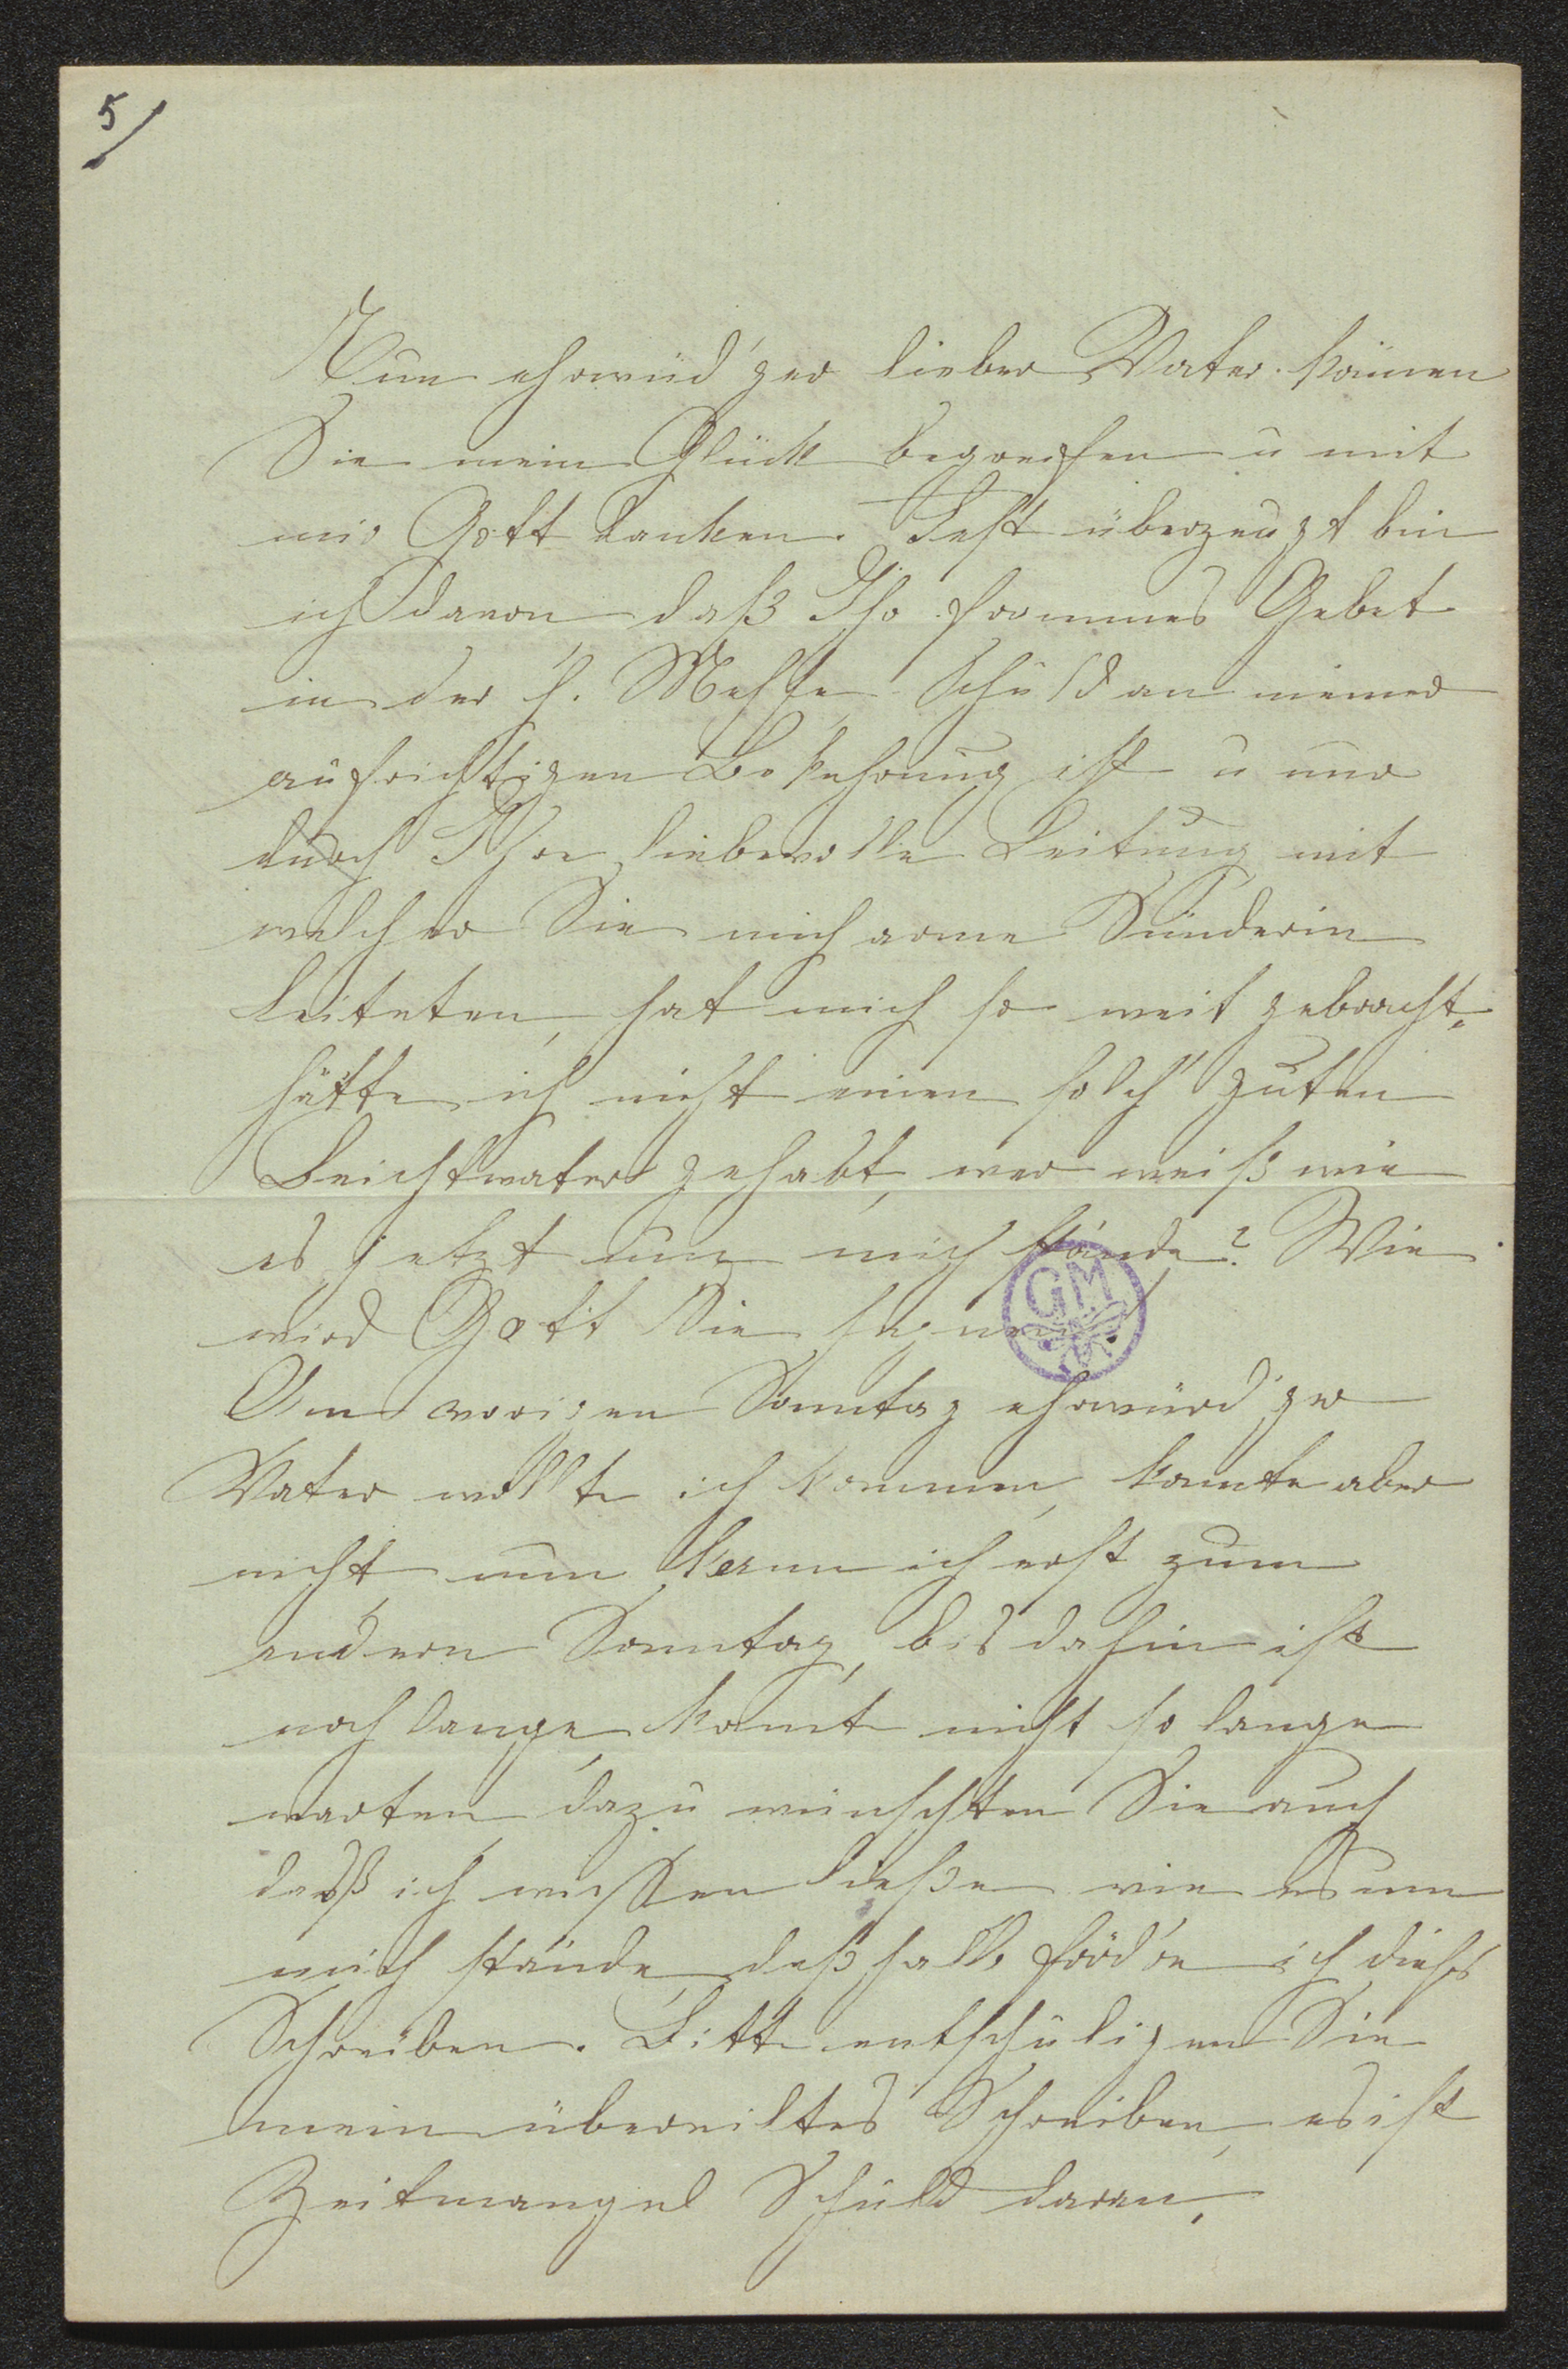 5/
Nun ehrwürd'ger lieber Vater können
Sie mein Glück begreifen u mit
mir Gott danken. Fest überzeugt bin
ich davon daß Ihr frommes Gebet
in der h. Messe Schuld an meiner
aufrichtigen Bekehrung ist u nur
durch Ihre liebevolle Leitung mit
welcher Sie mich arme Sünderin
leiteten, hat mich so weit gebracht,
hätte ich nicht einen solch' guten
Beichtvater gehabt, wer weiß wie
es jetzt um mich stände? Wie
wird Gott Sie segnen.
GM
Am vorigen Sonntag ehrwürd'ger
Vater wollte ich kommen, konnte aber
nicht, nun kann ich erst zum
andern Sonntag, bis dahin ist
noch lange, konnt nicht so lange
warten, dazu wünschten Sie auch
daß ich wissen ließe wie es um
mich stände, deßhalb ich dieß
Schreiben. Bitte entschuligen Sie
mein übereiltes Schreiben, es ist
Zeitmangel Schuld daran,